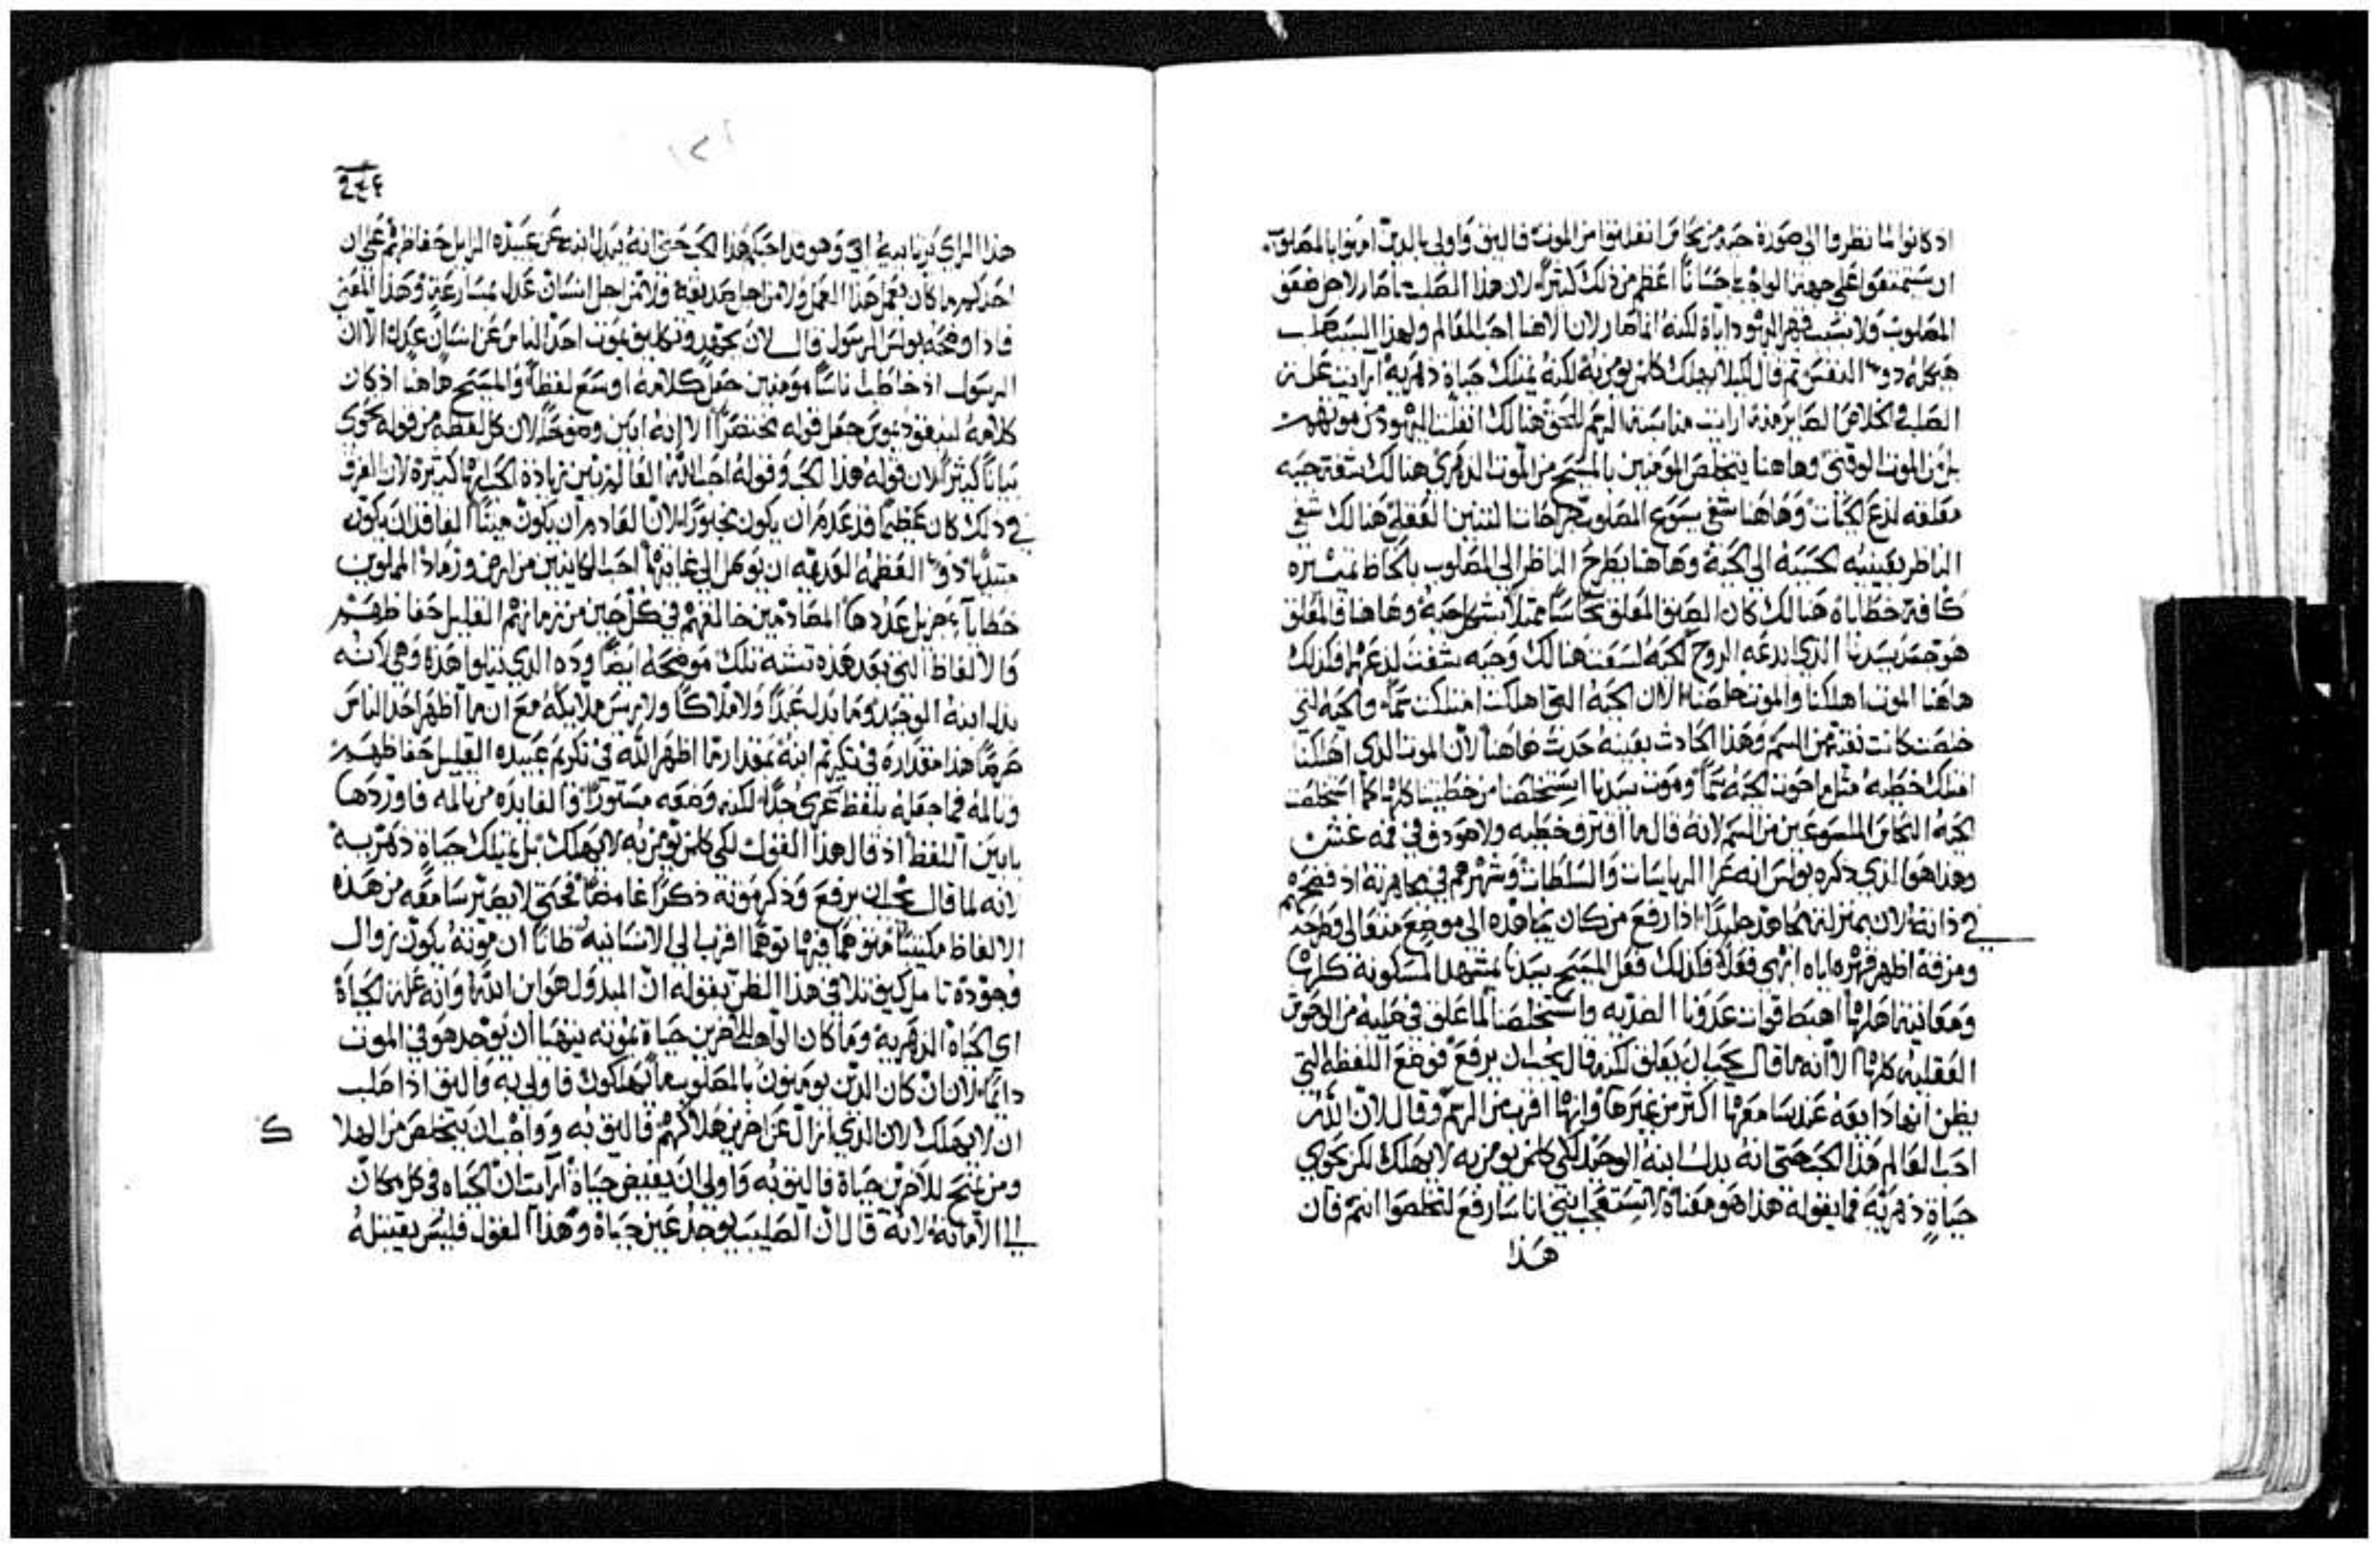 اذ كانوا لما نظروا الى صورة حية من نحاس انفلتوا من الموت فاليق واولى بالدين امنوا بالمصلوب
ان يستمتعوا على جهة الواجب احسانًا اعظم من ذلك كثيرًا لان هذا الصلب ما صار لاجل ضعف
المصلوب ولا نسب قهر اليهود اياه لكنه انما صار لان الاهنا احب العالم ولهذا السبب صلب
هيكله ذو النفس ثم قال لكيلا يهلك كلمن يومن به لكنه يمتلك حياة دهرية ارايت علة
الصلب والخلاص الصاير منه ارايت مناسبة الرسم للحق هنالك انفلت اليهود من موتهم
بل من الموت الوقتي وهاهنا يتخلص المومنين بالمسيح من الموت الدهري هنالك شفت حية
معلقه لدع الحيات وهاهنا شفى يسوع المصلوب جراحات التنين العقلي هنالك شفي
الناظر بعينيه الحسية الى الحية وهاهنا يطرح الناظر الى المصلوب بالحاظ تمييزه
كافة خطاياه هنالك كان الصنف المعلق نحاسًا ممثلا بشكل حية وهاهنا فالمعلق
هو جسد سيدنا الذي ابدعه الروح لحية لسعت هنالك وحيه شفت لدعتها فكذلك
هاهنا الموت اهلكنا والموت خلصنا الا ان الحية التي اهلكت امتلكت سمًا والحية التي
خلصت كانت نقية من السم وهذا الحادث بعينه حدث هاهنا لان الموت الذي اهلكنا
امتلك خطية مثل ما حوت الحية سمًا وموت سيدنا استخلصنا من خطيتنا كلها كما استخلصت
الحية النحاس الملسوعين من السم لانه قال ما اقترف خطيه ولا وجد في فمه غش
وهذا هو الذي ذكره بولس انه عرا الرياسات والسلطات وشهرهم في مجاهرته اذ فضحهم
في ذاته لان بمنزلة مجاهد جليد اذا رفع من كان يجاهده الى موضع متعالى وطرحه
ومزقه اظهر قهره اياه ابهى فعلا فكذلك فعل المسيح سيدنا بمشهد المسكونة كلها
ومعاينتها كلها اهبط قوات عدونا الضديه واستخلصنا لما علق في صليبه من الوحوش
العقليه كلها الا انه ما قال يجب ان يعلق لكنه قال يجب ان يرفع فوضع اللفظه التي
يظن انها دايعه عند سامعها اكثر من غيرها وانها اقرب من الرسم وقال لان الله
احب العالم هذا الحب حتى انه بدل ابنه الوحيد لكي كلمن يومن به لا يهلك لكن يحوي
حياةً دهريه فما يقوله هذا هو معناه لا تستعجب بانني انا سارفع لتخلصوا انتم فان
هذا
هذا الراي يرتاييه ابي وهو قد احبكم هذا الحب حتى انه بدل ابنه عن عبيده الزايل حفاظهم على ان
احد كم ما كان يعمل هذا العمل ولا من اجل صديقه ولا من اجل انسان عدل بمسارعة وهذا المعنى
فاذا وضحه بولس الرسول قال لان بجهد وتكليف يموت احد الناس عن انسان عدل الا ان
الرسول اذ خاطب ناسًا مومنين جعل كلامه اوسع لفظًا والمسيح هاهنا اذ كان
كلامه لنيقوديموس جعل قوله مختصرًا الا انه ابين وضوحًا لان كل لفظة من قوله تحوي
بيانًا كثيرًا لان قوله هذا الحب وقوله احب الله العالم تبين زيادة الحب انها كثيرة لان الفرق
في ذلك كان عظيمًا قد عدم ان يكون محدودًا لان القادر ان يكون ميتًا الفاقد ان يكون
مبتديًا ذو العظمة العديمه ان يوصل الى غايتها احب الكاينين من ارض ورماد المملوين
خطايا جزيل عددها المصادمين خالقهم في كل حين من زمانهم القليل حفاظهم
فالالفاظ التي بعد هذه تشبه تلك موضحة ايضًا وده الذي يتلوا هذه وهي لانه
بدل ابنه الوحيد وما بدل عبدًا ولا ملاكًا ولا رييس ملايكة مع ان ما اظهر احد الناس
حرصًا هذا مقداره في تكريم ابنه بمقدار ما اظهر الله في تكريم عبيده القليل حفاظهم
وتالمه فما جعله بلفظ عري جدًا لكنه وضعه مستورًا والفايده من تالمه فاوردها
بابين اللفظ اذ قال هذا القول لكي كلمن يومن به لا يهلك بل يمتلك حياة دهرية
لانه لما قال يجب ان يرفع وذكر موته ذكرًا غامضًا فحتى لا يصير سامعه من هذه
الالفاظ مكتيبًا متوهمًا فيها توهمًا اقرب الى الانسانيه ظانًا ان موته يكون زوال
وجوده تامل كيف تلافى هذا الظن بقوله ان المبدول هو ابن الله وانه علة الحياة
اي الحياه الدهرية وما كان الواهب للاخرين حياة بموته يتهيا ان يوجد هو في الموت
دايمًا لان ان كان الدين يومنون بالمصلوب ما يهلكون فاولى به واليق اذا صلب
ان لا يهلك لان الذي ازال عن اخرين هلاكهم فاليق به وواجب ان يتخلص من الهلا
ك
ومن يمنح للاخرين حياة فاليق به واولى ان يفيض حياة ارايت ان الحياه في كل مكان
الى الامانه لانه قال ان الصليب يوجد عين حياة وهذا القول فليس يقتبله